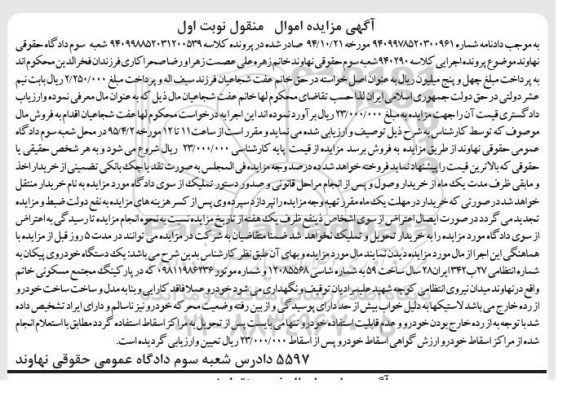 آگهی مزایده اموال   منقول نوبت اول
به موجب دادنامه شماره ۹۴۰۹۹۷۸۵۲۰۳۰۰۹۶۱ مورخه ۹۴/۱۰/۲۱ صادر شده در پرونده کلاسه ۹۴۰۹۹۸۸۵۲۰۳۱۲۰۰۵۳۹ شعبه سوم دادگاه حقوقی
نهاوند موضوع پرونده اجرایی کلاسه ۹۴۰۲۹۰ شعبه سوم حقوقی نهاوند خانم زهره علی عصمت زهرا و رضا صحراکاری فرزندان فخرالدین محکوم اند
به پرداخت مبلغ چهل و پنج میلیون ریال به عنوان اصل خواسته در حق خانم عفت شجاعیان فرزند سیف اله و پرداخت مبلغ ۲/۲۵۰/۰۰۰ ریال بابت نیم
عشر دولتی در حق دولت جمهوری اسلامی ایران لذا حسب تقاضای محکوم لها خانم عفت شجاعیان مال ذیل که به عنوان مال معرفی نموده و ارزیاب
دادگستری قیمت آن را جهت مزایده به مبلغ ۲۳/۰۰۰/۰۰۰ ریال برآورد نموده اند این اجرا به درخواست محکوم لها عفت شجاعیان اقدام به فروش مال
موصوف که توسط کارشناس به شرح ذیل توصیف و ارزیابی شده می نماید و مقرر است از ساعت ۱۱ تا ۱۲ مورخه ۹۵/۴/۲ در محل شعبه سوم دادگاه
عمومی حقوقی نهاوند از طریق مزایده به فروش برسد مزایده از قیمت پایه کارشناسی ۲۳/۰۰۰/۰۰۰ ریال شروع می شود و به هر شخص حقیقی یا
حقوقی که بالاترین قیمت را پیشنهاد نماید فروخته خواهد شد ده درصد وجه مزایده فی المجلس به صورت نقد یا چک بانکی تضمینی از خریدار اخذ
و مابقی ظرف مدت یک ماه از خریدار وصول و پس از انجام مراحل قانونی و صدور دستور تملیک از سوی دادگاه مورد مزایده به نام خریدار منتقل
خواهد شد در صورتی که خریدار در مهلت یک ماه مقرر تهیه وجه مزایده را نپردازد سپرده وی پس از کسر هزینه های مزایده به نفع دولت ضبط و مزایده
تجدید می گردد در صورت ایصال اعتراض از سوی اشخاص ذینفع ظرف یک هفته از تاریخ مزایده نسبت به نحوه انجام مزایده تا رسیدگی به اعتراض
از سوی دادگاه مورد مزایده را به خریدار تحویل و تملیک نخواهد شد ضمنا متقاضیان به شرکت در مزایده می توانند در مدت ۵ روز قبل از مزایده با
هماهنگی این اجرا از مال مورد مزایده دیدن نمایند مال مورد مزایده و بهای آن طبق نظر کارشناس بدین شرح می باشد: یک دستگاه خودروی پیکان به
شماره انتظامی ۲۷ب۳۴۲ ایران ۲۸ سال ساخت ۵۹ به شماره شاسی ۱۲۰۸۵۵۶۸ و شماره موتور ۰۹۸۱۱۹۸۶۲۳۶ که در پارکینگ مجتمع مسکونی خاتم
واقع در نهاوند میدان نیروی انتظامی کوچه شهید علیمرادیان توقیف و نگهداری می شود خودرو عملا فاقد کارایی و بنا به مدل و ساخت ساخت خودرو
از رده خارج می باشد لاستیکها به دلیل خواب بیش از حد دارای پوسیدگی و از بین رفته وضعیت محرکه خودرو نیز ناسالم و دارای ایراد تشخیص داده
شد با توجه به از رده خارج بودن خودرو و عدم قابلیت استفاده خودرو تنها می بایست پس از تحویل به مراکز اسقاط استفاده گردد مطابق با استعلام انجام
شده از مراکز اسقاط خودرو ارزش گواهی اسقاط خودرو پس از اسقاط ۲۳/۰۰۰/۰۰۰ ریال تعیین وارزیابی گردیده است.
۵۵۹۷ دادرس شعبه سوم دادگاه عمومی حقوقی نهاوند